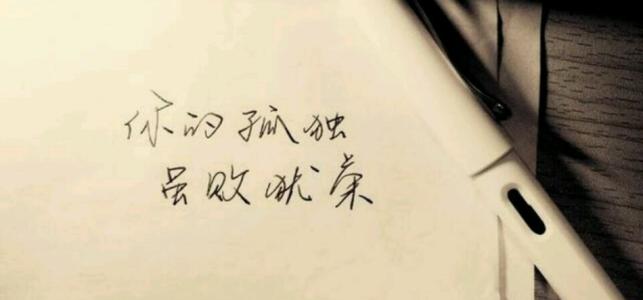 你的孤独
虽败犹荣